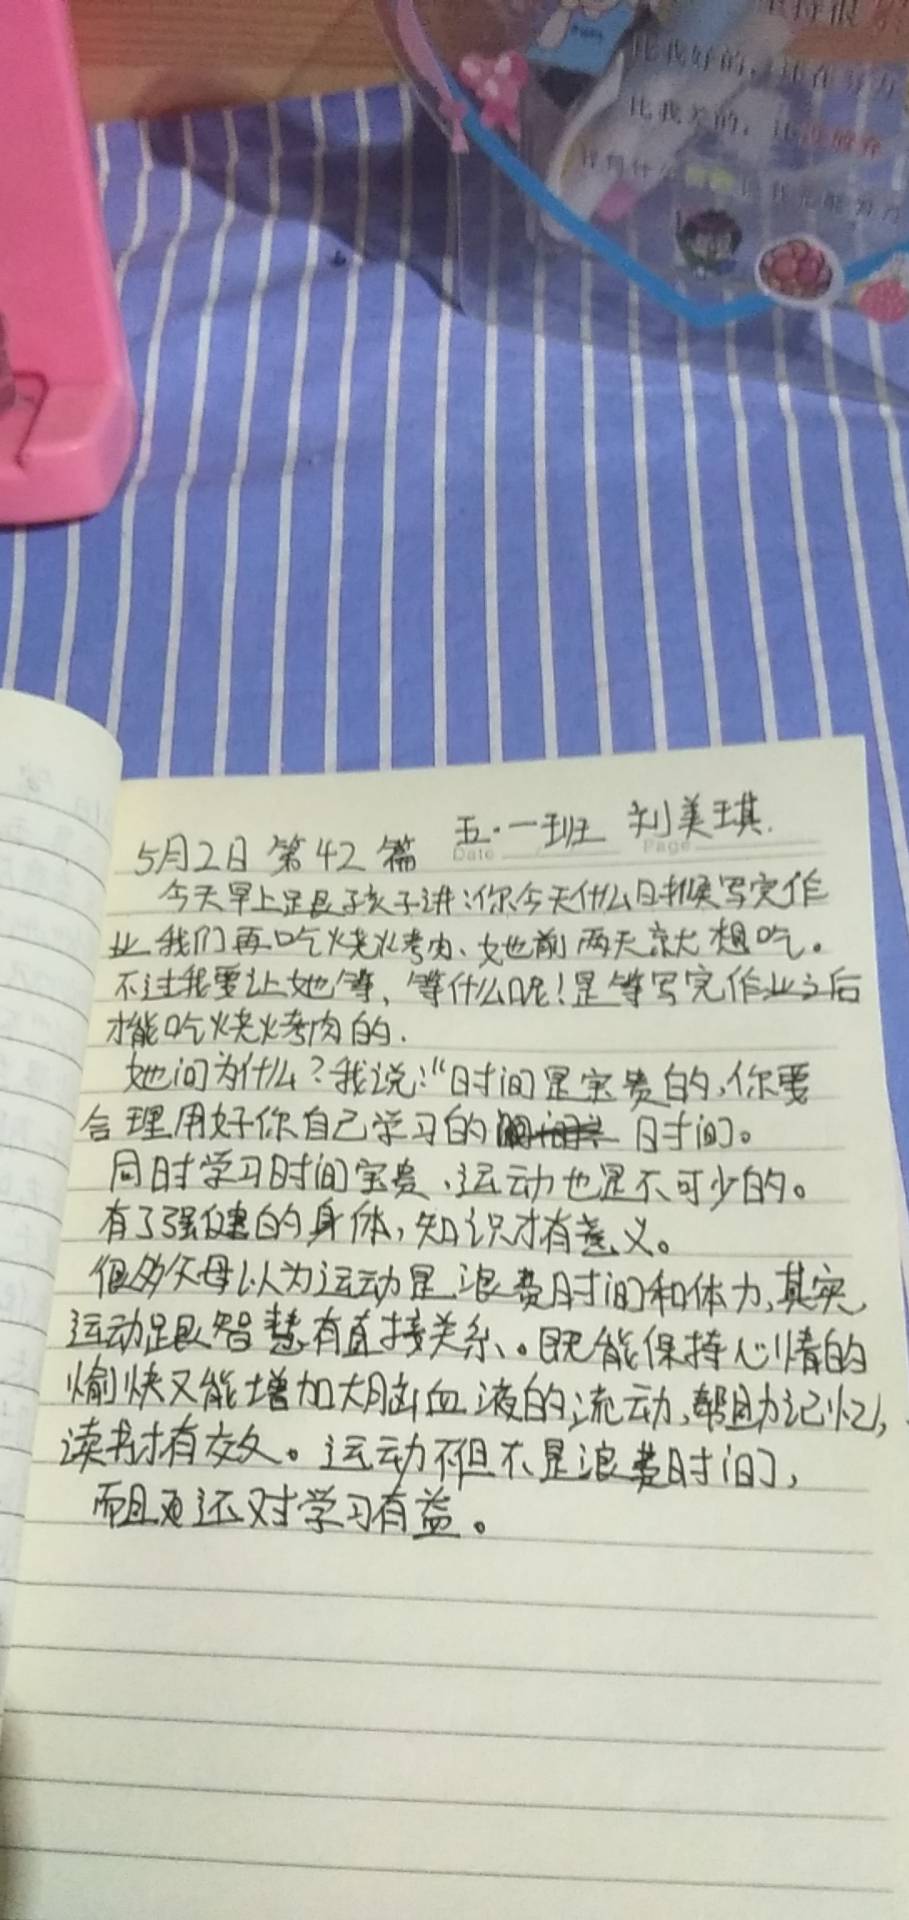 坚持很
比我好的，还在努力
比我差的，还没放弃
我有什么
五·一班 刘美琪.
5月2日 第42篇
Date
Page
今天早上跟孩子讲:你今天什么时候写完作
业我们再吃烧火烤肉、她前两天就想吃。
不过我要让她等、等什么呢!是等写完作业之后
才能吃烧火烤肉的.
她问为什么?我说:"时间是宝贵的,你要
合理用好你自己学习的 时间。
同时学习时间宝贵、运动也是不可少的。
有了强健的身体,知识才有意义。
很多父母以为运动是浪费时间和体力、其实
运动跟智慧有直接关系、。既能保持心情的
愉快又能增加大脑血液的流动、帮助记忆,
读书才有效。运动不但不是浪费时间,
而且还对学习有益。